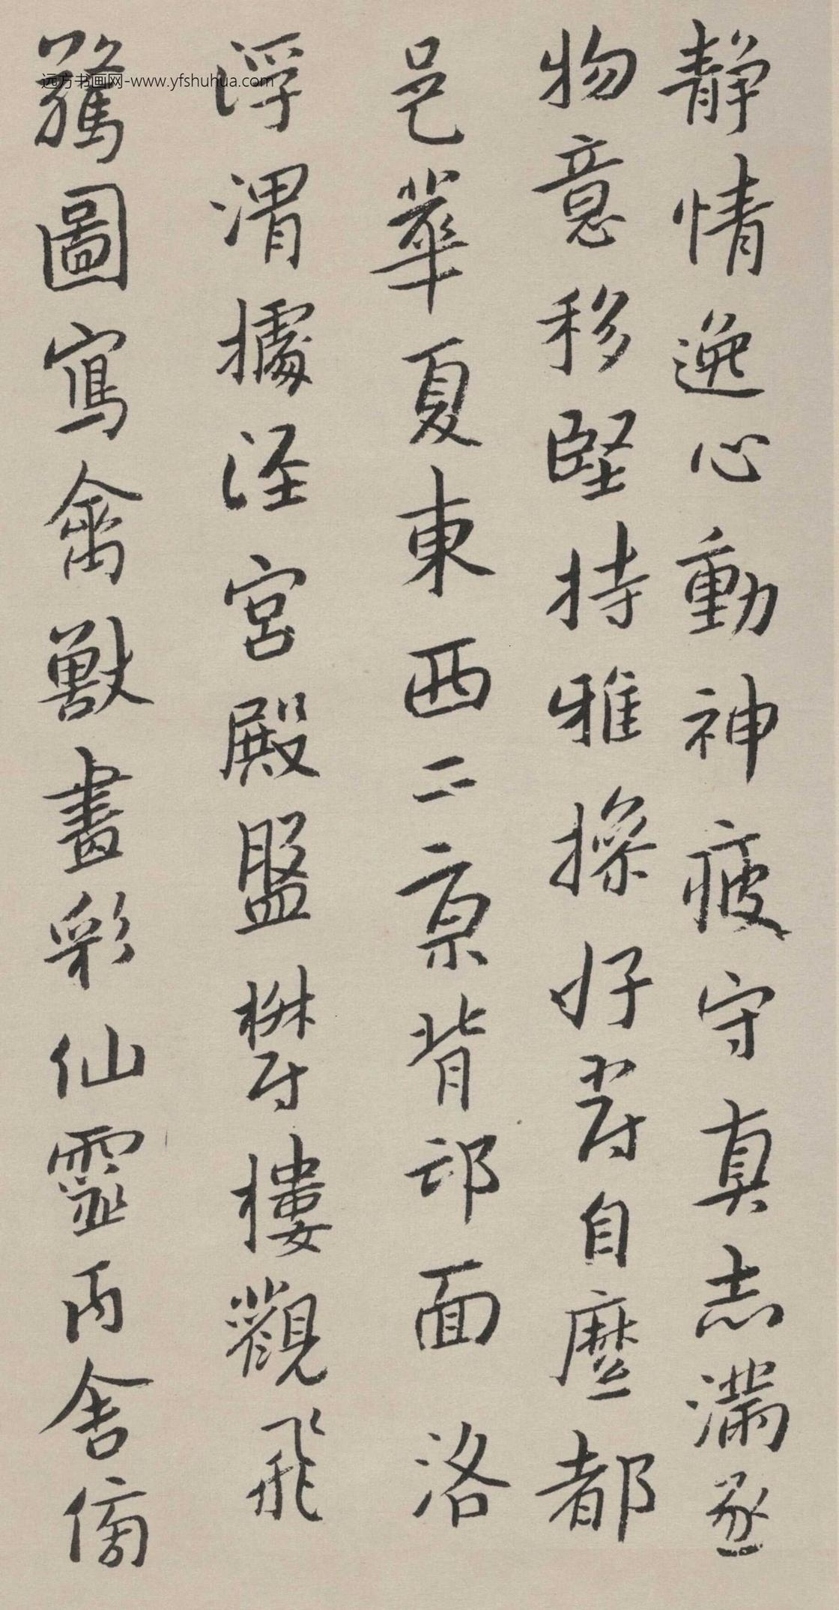 靜情逸心動神疲守真志滿逐
物意移堅持雅操好爵自縻都
邑華夏東西二京背邙面洛
浮渭據涇宮殿盤鬱樓觀飛
驚圖寫禽獸畫彩仙靈丙舍傍
远方书画网-www.yfshuhua.com